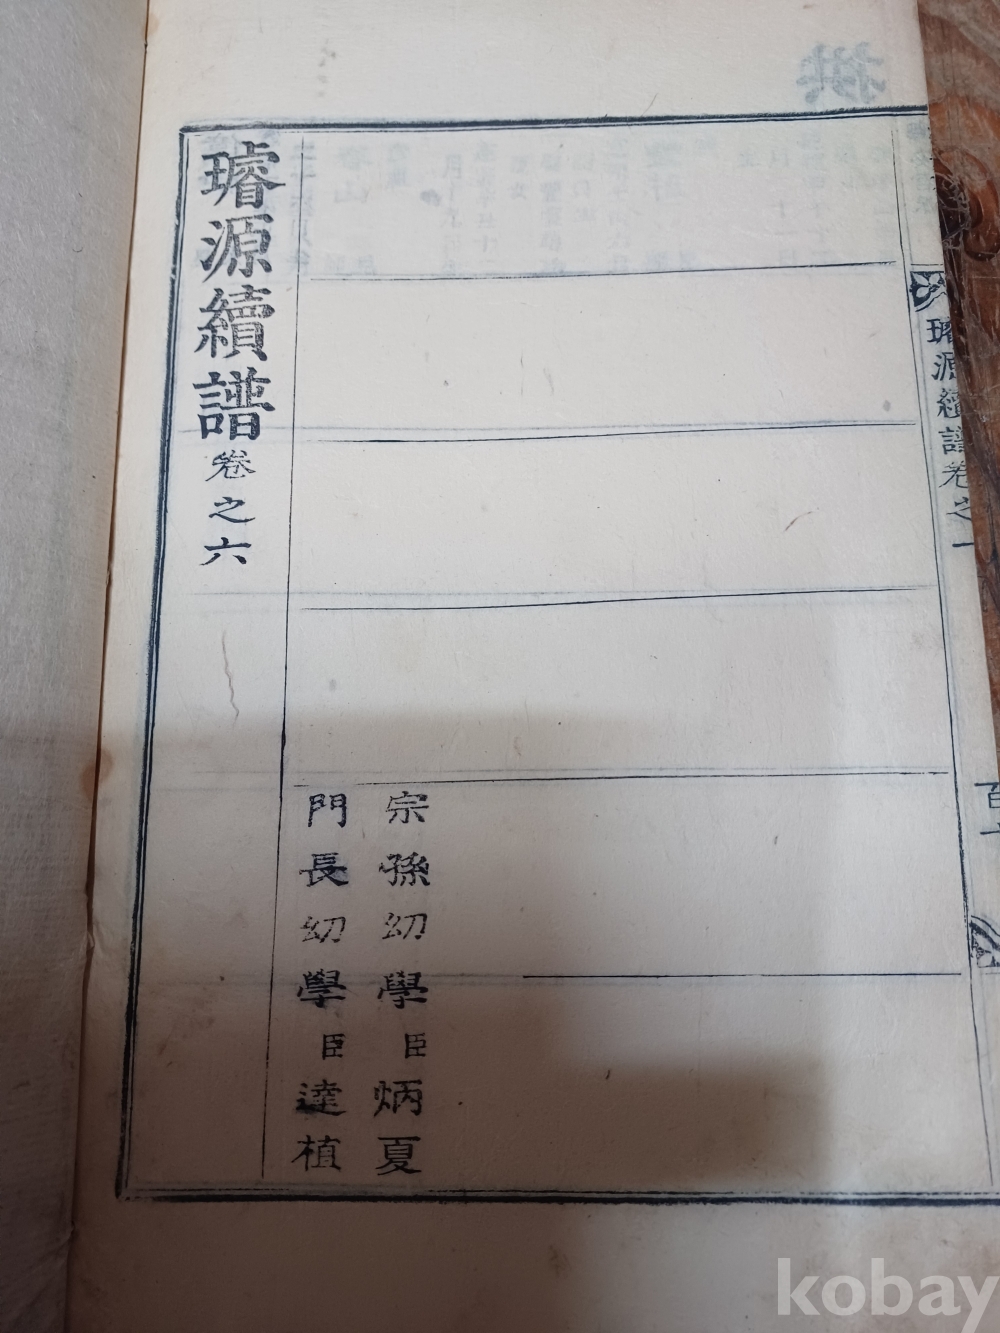 璿源續譜卷之一
百
宗孫幼學臣炳夏
門長幼學臣達植
璿源續譜卷之六
kobay